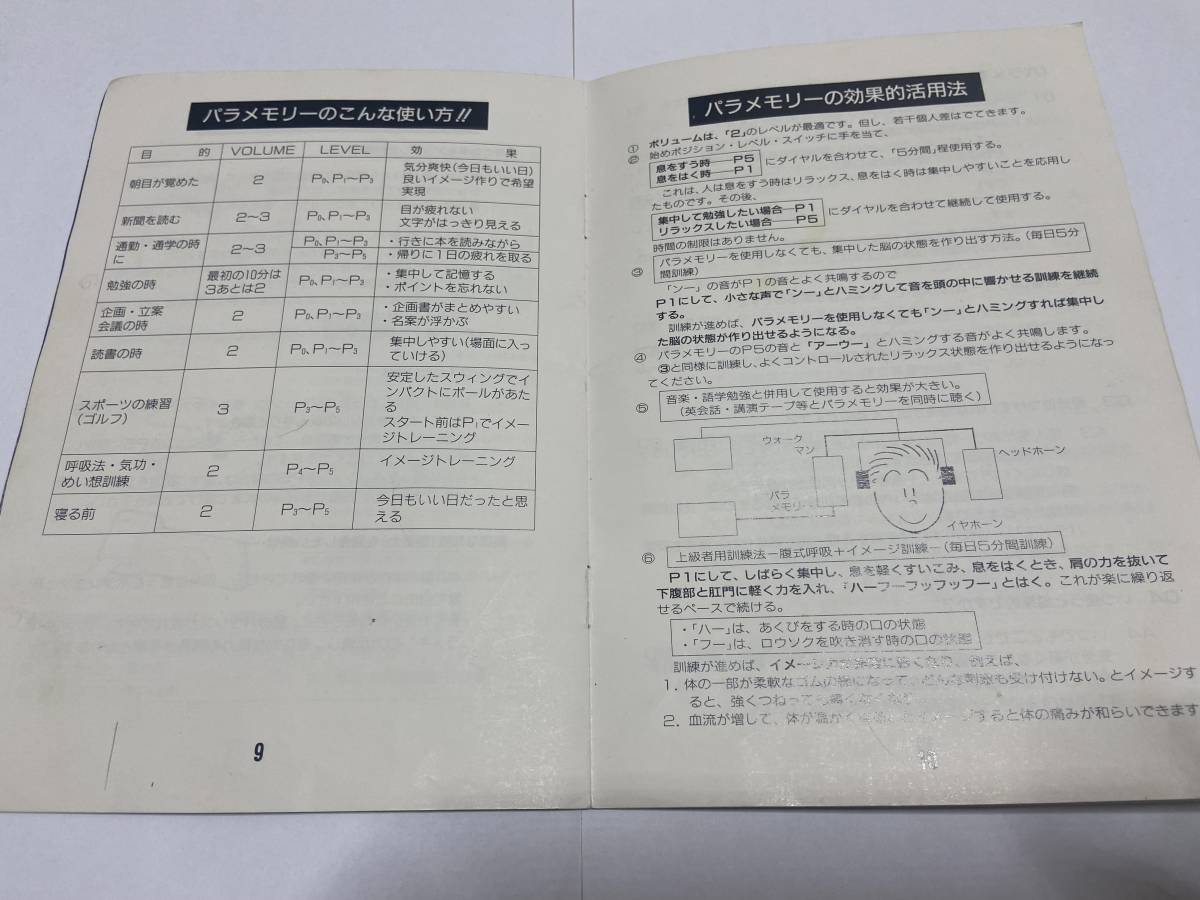 パラメモリーのこんな使い方!!
目 的 VOLUME LEVEL 効 果
朝目が覚めた 2 P₀、P₁〜P₃ 気分爽快(今日もいい日)
良いイメージ作りで希望
実現
新聞を読む 2〜3 P₀、P₁〜P₃ 目が疲れない
文字がはっきり見える
通勤・通学の時
に 2〜3 P₀、P₁〜P₃ ・行きに本を読みながら
P₃〜P₅ ・帰りに1日の疲れを取る
勉強の時 最初の10分は
3あとは2 P₀、P₁〜P₃ ・集中して記憶する
・ポイントを忘れない
企画・立案
会議の時 2 P₀、P₁〜P₃ ・企画書がまとめやすい
・名案が浮かぶ
読書の時 2 P₀、P₁〜P₃ 集中しやすい(場面に入っ
ていける)
スポーツの練習
(ゴルフ) 3 P₃〜P₅ 安定したスウィングでイ
ンパクトにボールがあた
る
スタート前はP₁でイメー
ジトレーニング
呼吸法・気功・
めい想訓練 2 P₄〜P₅ イメージトレーニング
寝る前 2 P₃〜P₅ 今日もいい日だったと思
える
9
パラメモリーの効果的活用法
① ボリュームは、「2」のレベルが最適です。但し、若干個人差はでてきます。
② 始めポジション・レベル・スイッチに手を当て、
息をすう時―P5
息をはく時―P1
にダイヤルを合わせて、「5分間」程使用する。
これは、人は息をすう時はリラックス、息をはく時は集中しやすいことを応用し
たものです。その後、
集中して勉強したい場合―P1
リラックスしたい場合―P5
にダイヤルを合わせて継続して使用する。
時間の制限はありません。
③ パラメモリーを使用しなくても、集中した脳の状態を作り出す方法。(毎日5分
間訓練)
「ンー」の音がP1の音とよく共鳴するので
P1にして、小さな声で「ンー」とハミングして音を頭の中に響かせる訓練を継続
する。
訓練が進めば、パラメモリーを使用しなくても「ンー」とハミングすれば集中し
た脳の状態が作り出せるようになる。
④ パラメモリーのP5の音と「アーウー」とハミングする音がよく共鳴します。
③と同様に訓練し、よくコントロールされたリラックス状態を作り出せるようになっ
てください。
⑤ 音楽・語学勉強と併用して使用すると効果が大きい。
(英会話・講演テープ等とパラメモリーを同時に聴く)
ウォーク
マン
ヘッドホーン
パラ
メモリー
イヤホーン
⑥ 上級者用訓練法―腹式呼吸+イメージ訓練―(毎日5分間訓練)
P1にして、しばらく集中し、息を軽くすいこみ、息をはくとき、肩の力を抜いて
下腹部と肛門に軽く力を入れ、「ハーフーフッフッフー」とはく。これが楽に繰り返
せるペースで続ける。
・「ハー」は、あくびをする時の口の状態
・「フー」は、ロウソクを吹き消す時の口の状態
訓練が進めば、イメージ 例えば、
1. 体の一部が柔軟なゴムの様になって、どんな刺激も受け付けない。とイメージす
ると、強くつねっても
2. 血流が増して、体が温かく イメージすると体の痛みが和らいできます